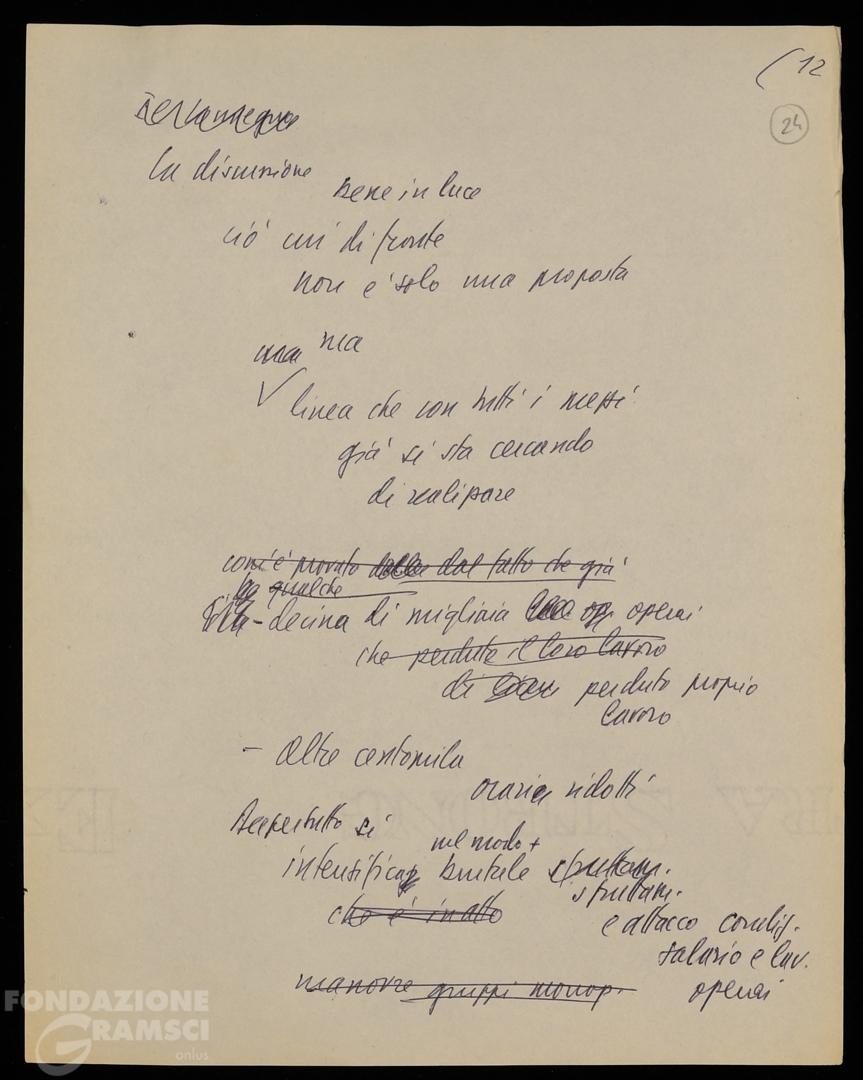 (12
24
La discussione
bene in luce
ciò cui di fronte
non è solo una proposta
ma una
linea che con tutti i mezzi
già si sta cercando
di realizzare
com'è provato dal fatto che già
qualche
Già - decina di migliaia operai
che perdute il loro lavoro
di perduto proprio
lavoro
- Oltre centomila
orari ridotti
Dappertutto si
nel modo +
intensifica brutale sfruttam.
sfruttam.
che è in atto
e attacco condiz.
salario e lav.
manovre gruppi monop.
operai
FONDAZIONE
GRAMSCI
onlus